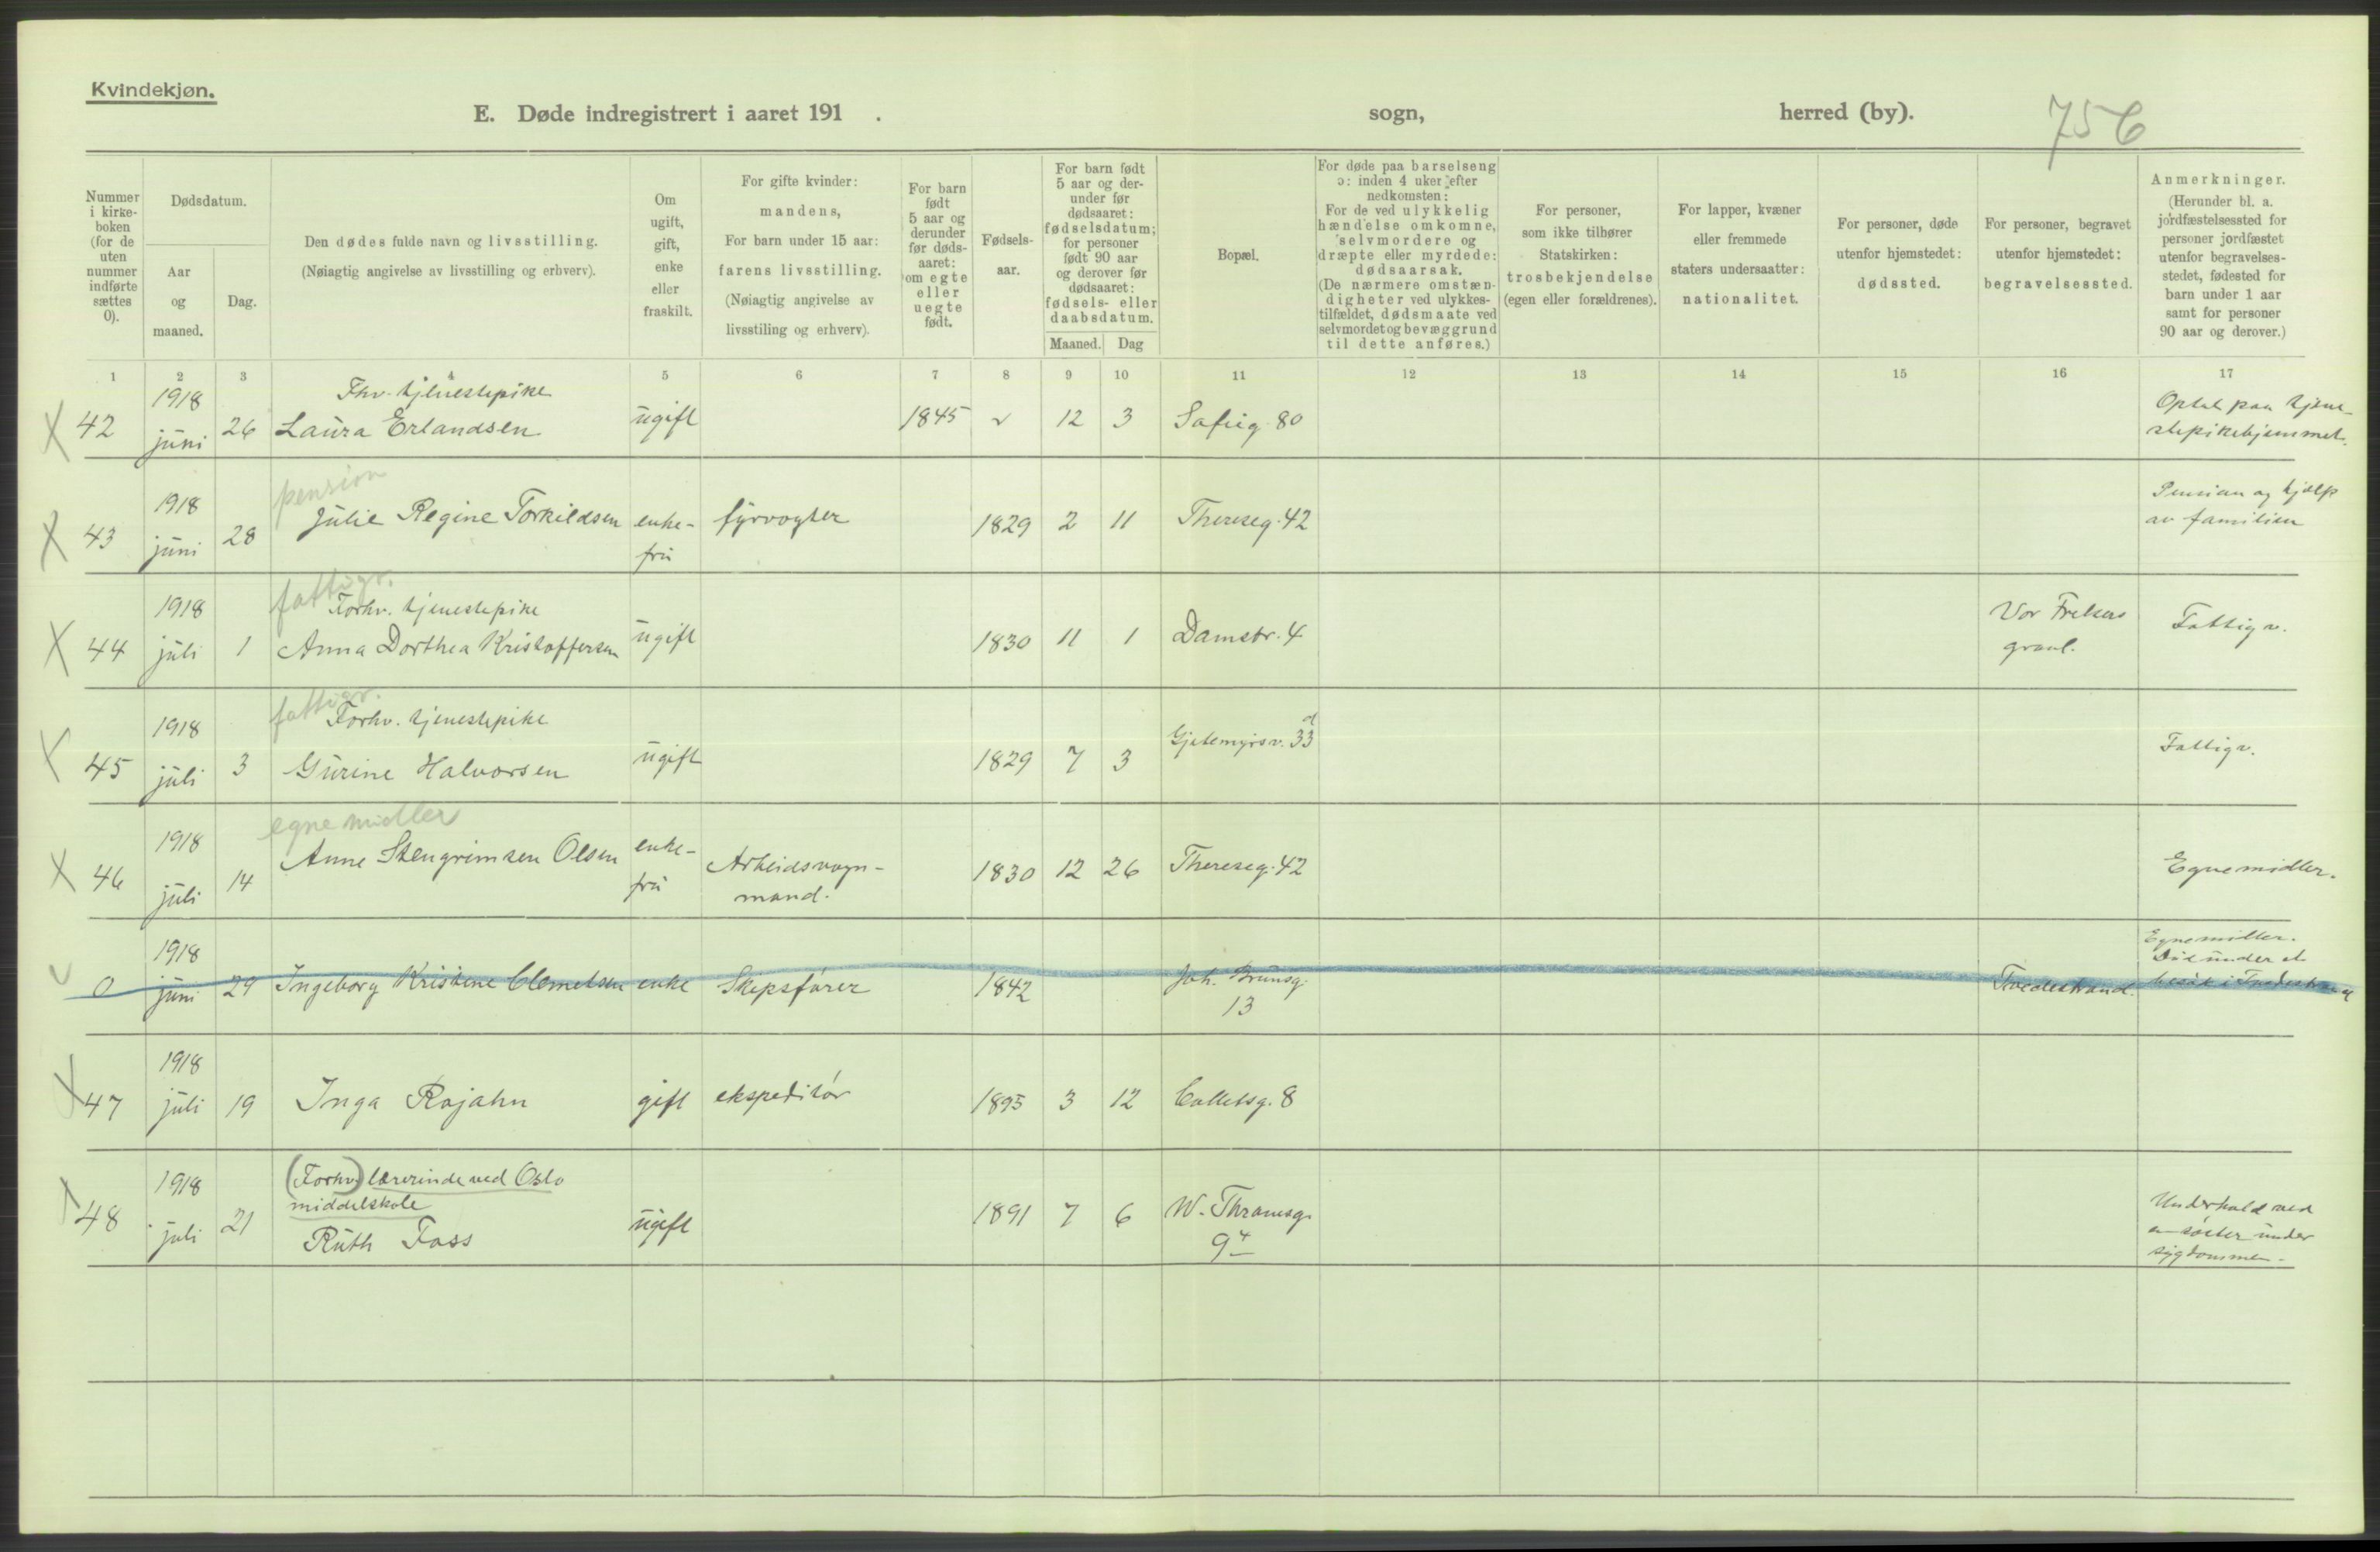 Kvindekjøn.
E. Døde indregistrert i aaret 191 . sogn, herred (by). 756
Nummer i kirke-boken (for de uten nummer indførte sættes 0).
Dødsdatum.
Aar og maaned.
Dag.
Den dødes fulde navn og livsstilling.
(Nøiagtig angivelse av livsstilling og erhverv).
Om ugift, gift, enke eller fraskilt.
For gifte kvinder: mandens, For barn under 15 aar: farens livsstilling. (Nøiagtig angivelse av livsstiling og erhverv).
For barn født 5 aar og derunder før døds-aaret: om egte eller uegte født.
Fødsels-aar.
For barn født 5 aar og der-under før dødsaaret: fødselsdatum; for personer født 90 aar og derover før dødsaaret: fødsels- eller daabsdatum.
Maaned. Dag
Bopæl.
For døde paa barselseng ɔ: inden 4 uker efter nedkomsten: For de ved ulykkelig hændelse omkomne, selvmordere og dræpte eller myrdede: dødsaarsak. (De nærmere omstæn-digheter ved ulykkes-tilfældet, dødsmaate ved selvmordet og bevæggrund til dette anføres.)
For personer, som ikke tilhører Statskirken: trosbekjendelse (egen eller forældrenes).
For lapper, kvæner eller fremmede staters undersaatter: nationalitet.
For personer, døde utenfor hjemstedet: dødssted.
For personer, begravet utenfor hjemstedet: begravelsessted.
Anmerkninger. (Herunder bl. a. jordfæstelsessted for personer jordfæstet utenfor begravelses-stedet, fødested for barn under 1 aar samt for personer 90 aar og derover.)
1 2 3 4 5 6 7 8 9 10 11 12 13 14 15 16 17
X 42 1918 juni 26 Fhv. tjenestepike Laura Erlandsen ugift 1845 12 3 Sofieg. 80 Optat paa tjene-stepikehjemmet.
X 43 1918 juni 28 pension Julie Regine Torkildsen enke-fru fyrvogter 1829 2 11 Thereseg. 42 Pension og hjælp av familien
X 44 1918 juli 1 fattigv. Forhv. tjenestepike Anna Dorthea Kristoffersen ugift 1830 11 1 Damstr. 4 Vor Frelsers gravl. Fattigv.
X 45 1918 juli 3 fattigv. Forhv. tjenestepike Gurine Halvorsen ugift 1829 7 3 Gjetemyrsv. 33 d Fattigv.
X 46 1918 juli 14 egne midler Anne Stengrimsen Olsen enke-fru Arbeidsvogn-mand. 1830 12 26 Thereseg. 42 Egne midler.
0 1918 juni 29 Ingeborg Kristene Clemetsen enke Skipsfører 1842 Joh. Brunsg. 13 Tvedestrand. Egne midler. Død under et besøk i Tvedestrand
X 47 1918 juli 19 Inga Rojahn gift ekspeditør 1895 3 12 Colletsg. 8
X 48 1918 juli 21 (Forhv.) lærerinde ved Oslo middelskole Ruth Foss ugift 1891 7 6 W. Thranesg. 9 4 Underhold ved en søster under sygdommen.